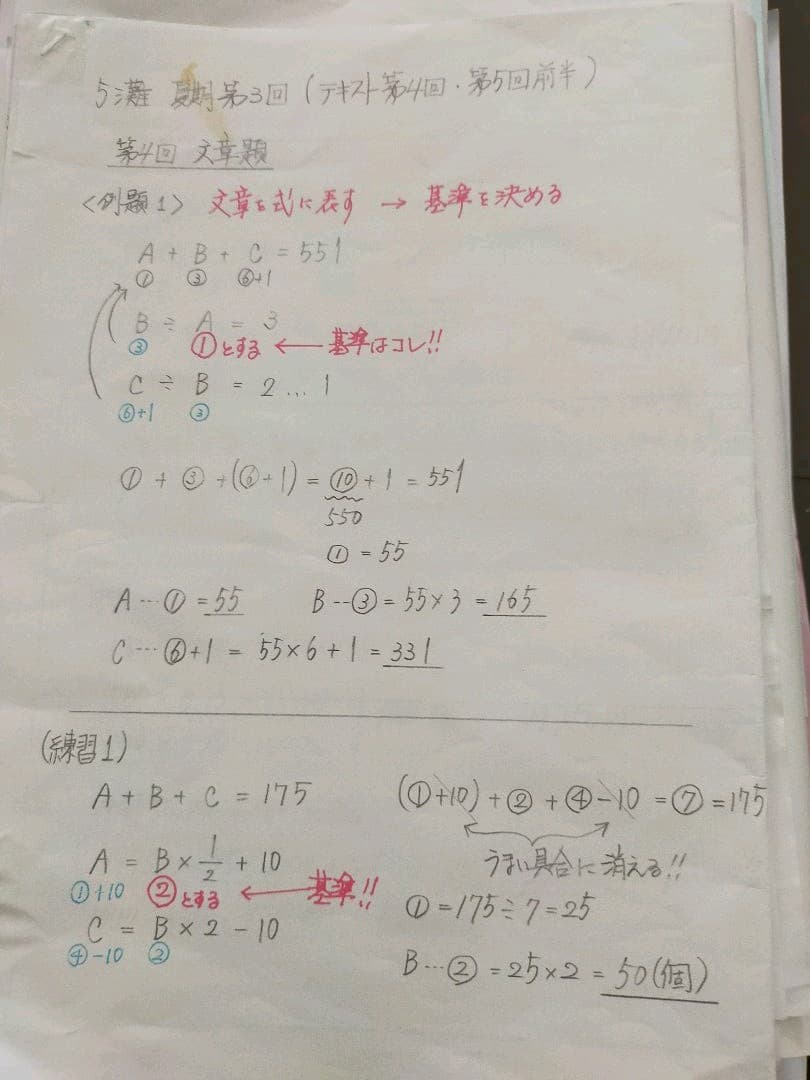 5灘 夏期第3回（テキスト第4回・第5回前半）
第4回 文章題
〈例題1〉 文章を式に表す → 基準を決める
A + B + C = 551
① ③ ⑥+1
B ÷ A = 3
③ ①とする ← 基準はコレ!!
C ÷ B = 2 … 1
⑥+1 ③
① + ③ + (⑥+1) = ⑩+1 = 551
550
① = 55
A … ① = 55 B … ③ = 55×3 = 165
C … ⑥+1 = 55×6+1 = 331
(練習1)
A + B + C = 175
A = B × 1/2 + 10
①+10 ②とする ← 基準!!
C = B × 2 - 10
④-10 ②
(①+10) + ② + ④-10 = ⑦ = 175
うまい具合に消える!!
① = 175÷7 = 25
B … ② = 25×2 = 50(個)